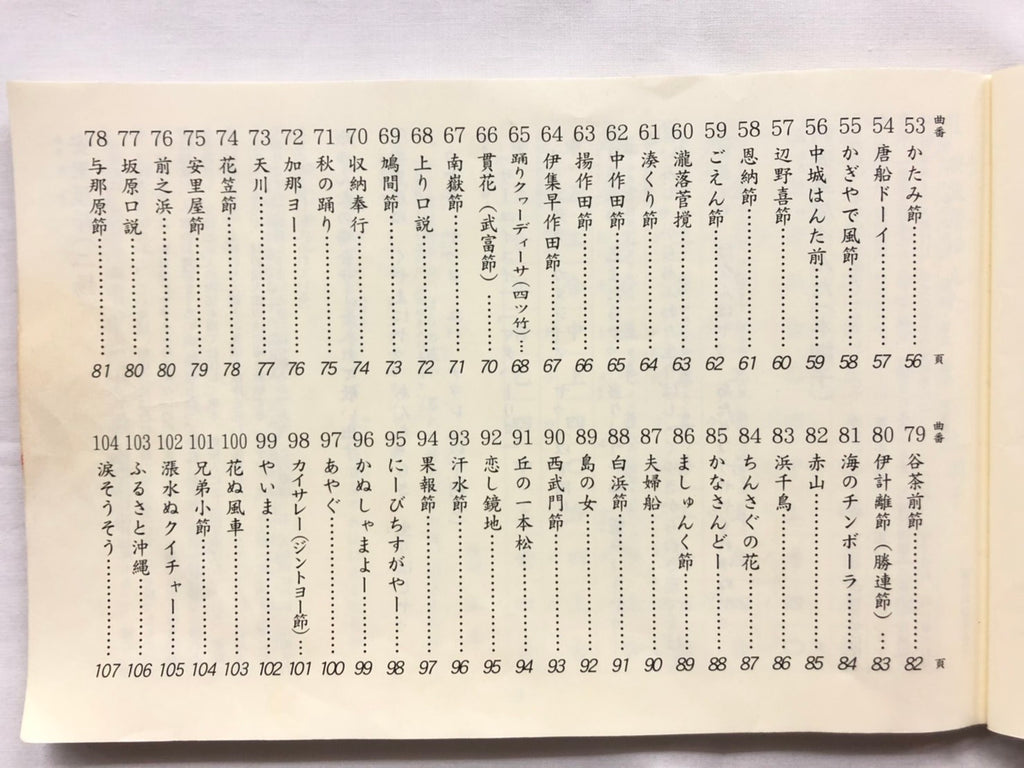 曲番 頁
53 かたみ節 56
54 唐船ドーイ 57
55 かぎやで風節 58
56 中城はんた前 59
57 辺野喜節 60
58 恩納節 61
59 ごえん節 62
60 瀧落菅撹 63
61 湊くり節 64
62 中作田節 65
63 揚作田節 66
64 伊集早作田節 67
65 踊りクワーディーサ(四ツ竹) 68
66 貫花(武富節) 70
67 南嶽節 71
68 上り口説 72
69 鳩間節 73
70 収納奉行 74
71 秋の踊り 75
72 加那ヨー 76
73 天川 77
74 花笠節 78
75 安里屋節 79
76 前之浜 80
77 坂原口説 80
78 与那原節 81
曲番 頁
79 谷茶前節 82
80 伊計離節(勝連節) 83
81 海のチンボーラ 84
82 赤山 85
83 浜千鳥 86
84 ちんさぐの花 87
85 かなさんどー 88
86 ましゅんく節 89
87 夫婦船 90
88 白浜節 91
89 島の女 92
90 西武門節 93
91 丘の一本松 94
92 恋し鏡地 95
93 汗水節 96
94 果報節 97
95 にーびちすがやー 98
96 かぬしゃまよー 99
97 あやぐ 100
98 カイサレー(ジントヨー節) 101
99 やいま 102
100 花ぬ風車 103
101 兄弟小節 104
102 漲水ぬクイチャー 105
103 ふるさと沖縄 106
104 涙そうそう 107